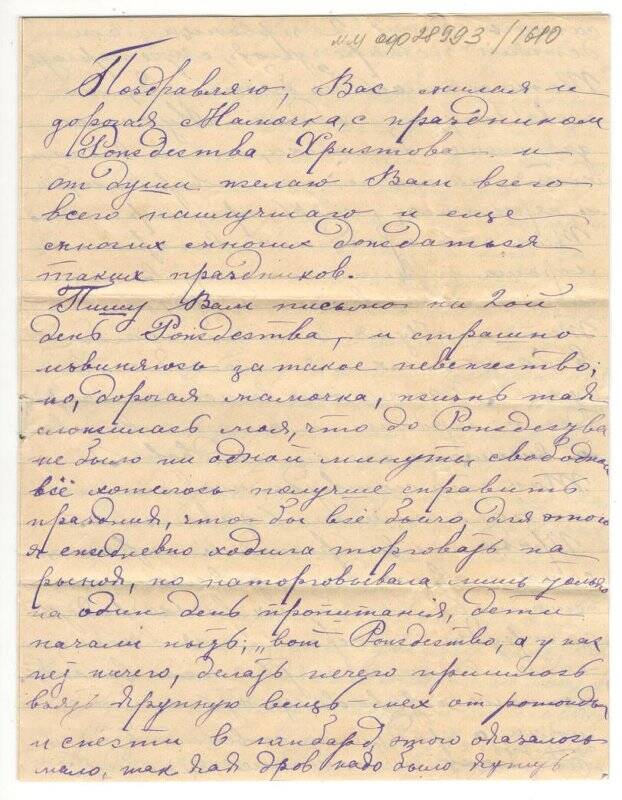 мм оф 28993/1610
Поздравляю, Вас милая и
дорогая Мамочка, с праздником
Рождества Христова и
от души желаю Вам всего
всего наилучшаго и еще
многих многих дождаться
таких праздников.
Пишу Вам письмо на 2ой
день Рождества, и страшно
извиняюсь за такое невежество;
но, дорогая мамочка, жизнь так
сложилась моя, что до Рождества
не было ни одной минуты свободной
всё хотелось получше справить
праздник, что бы всё было, для этого
я ежедневно ходила торговать на
рынок, но наторговывала лишь только
на один день пропитания, дети
начали ныть, „вот Рождество, а у нас
нет ничего, делать нечего пришлось
взять крупную вещь мех от ротонды
и снести в ламбард, этого оказалось
мало, так как дров надо было купить